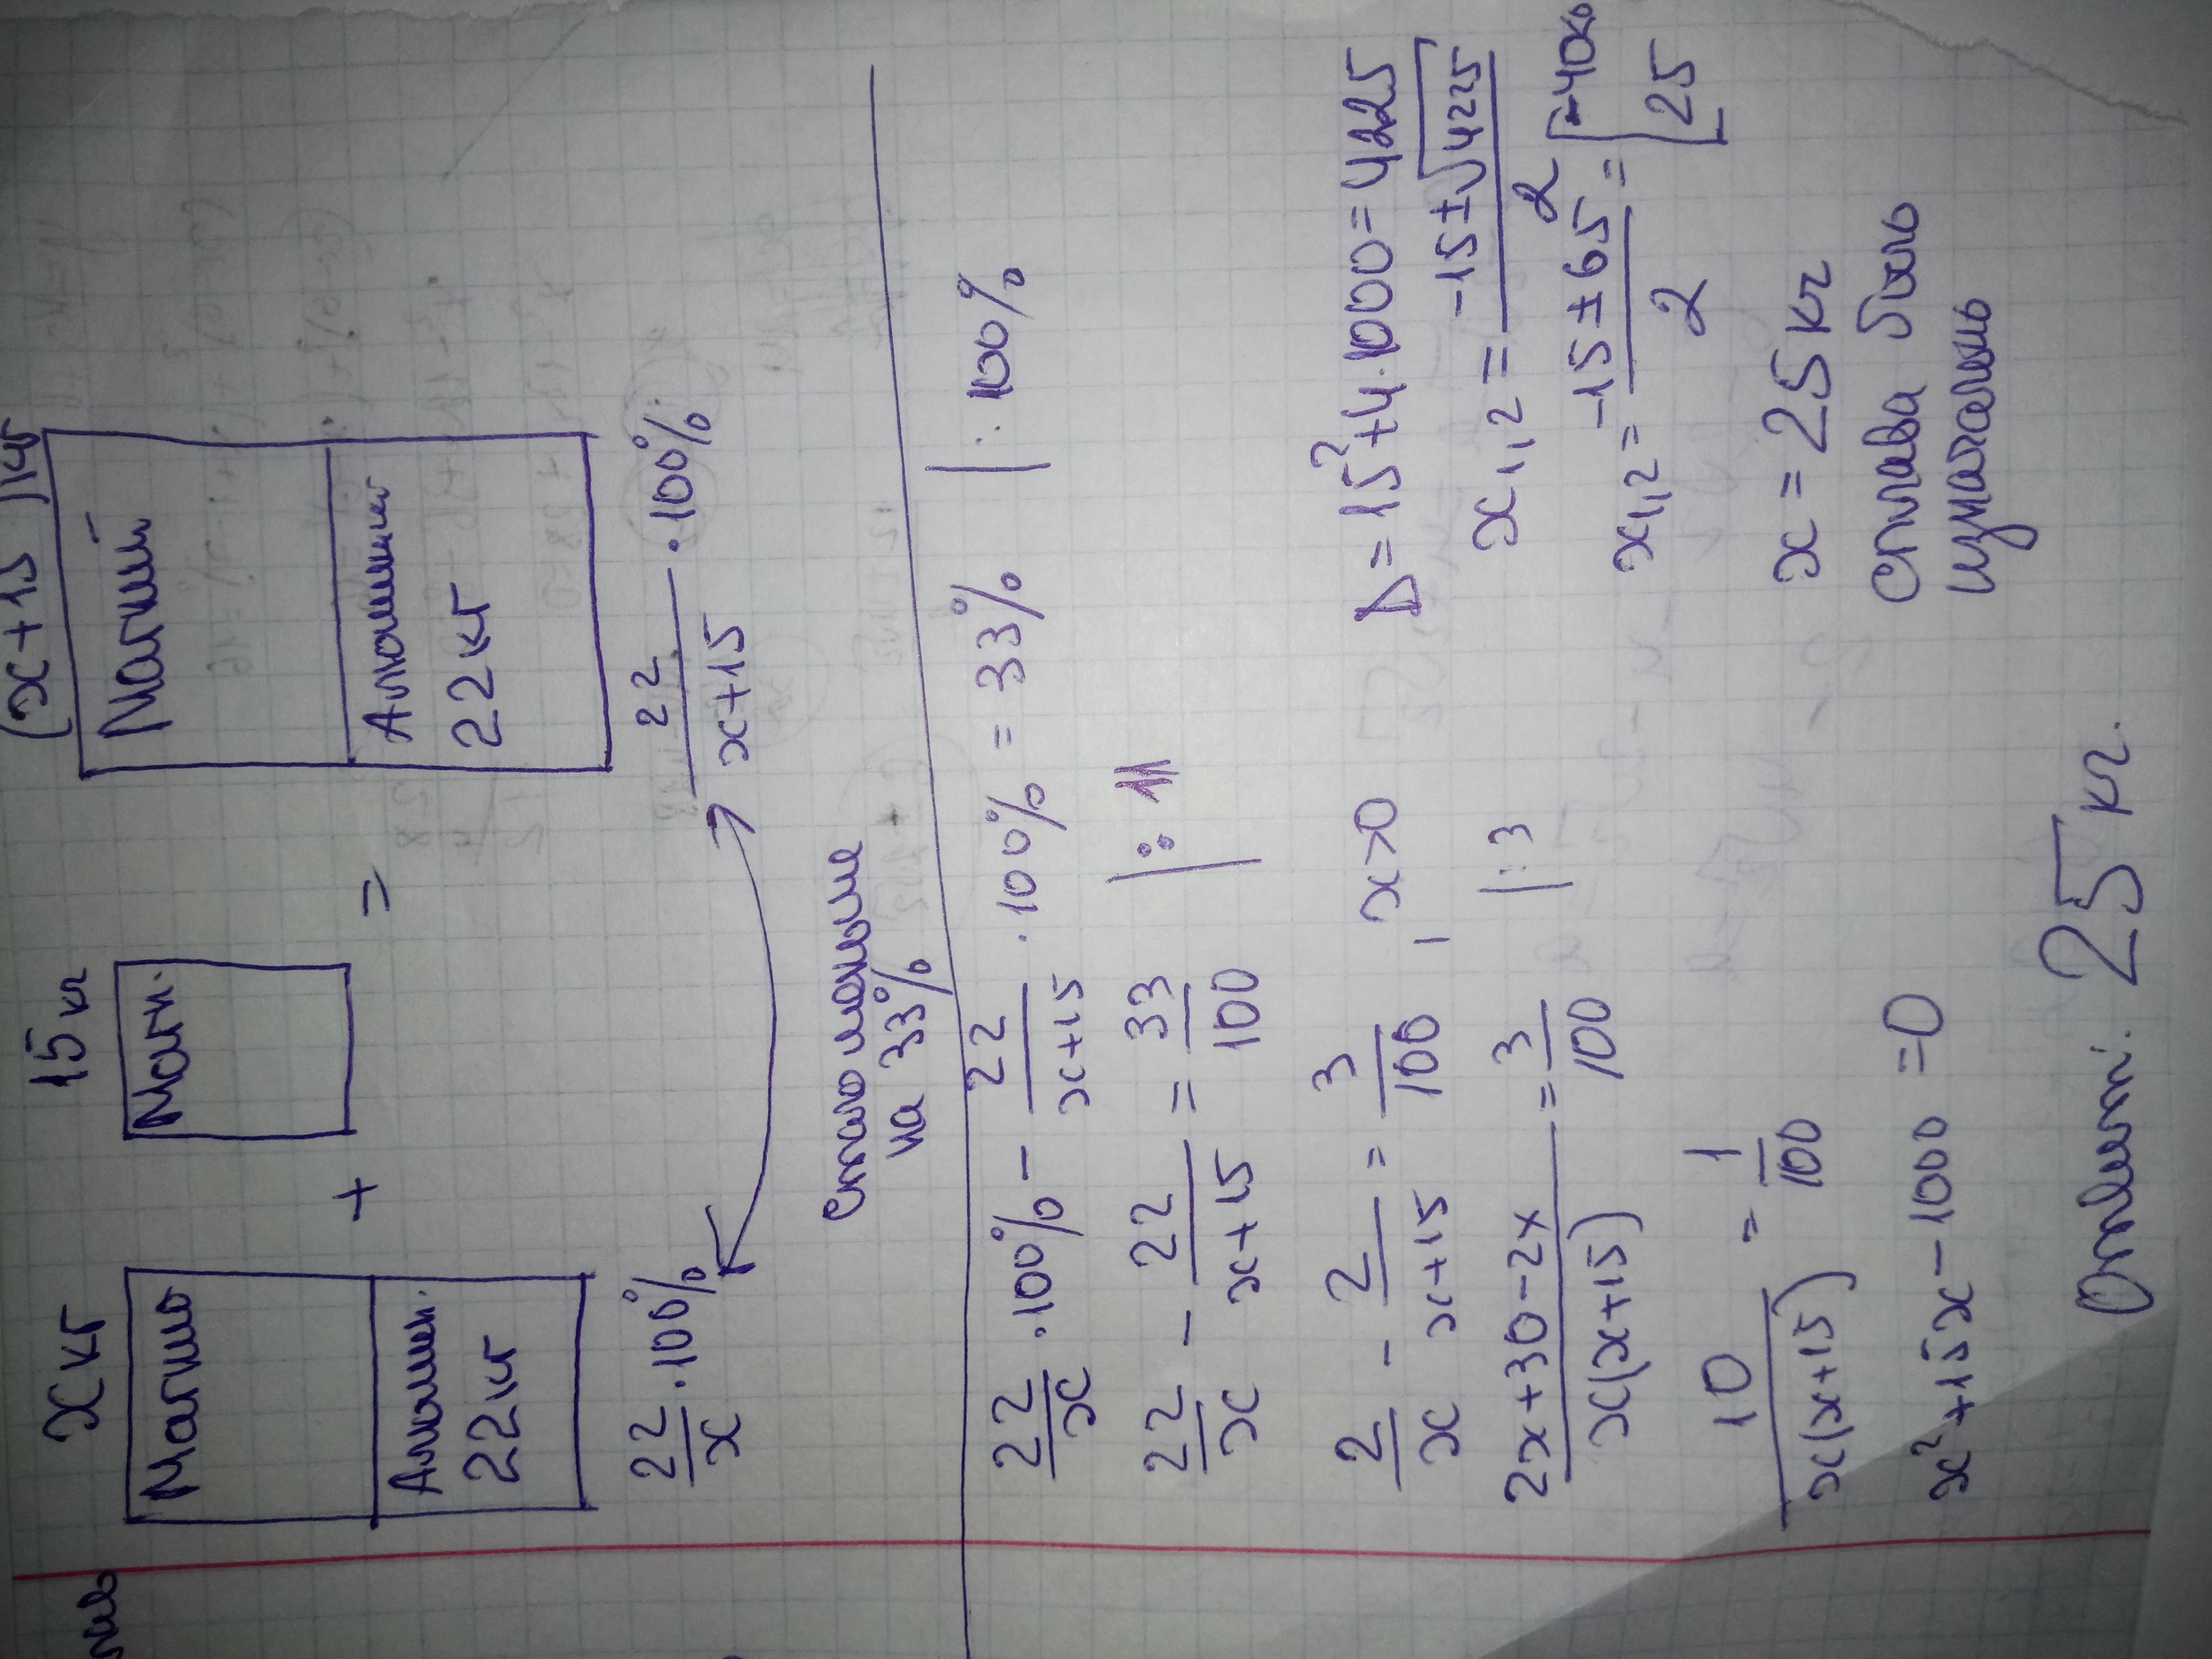 x кг 15 кг (x+15) кг
Магний Магн. Магний
+ =
Алюмин. Алюминий
22 кг 22 кг
22/x · 100% 22/(x+15) · 100%
Стало меньше
на 33%
22/x · 100% - 22/(x+15) · 100% = 33% |: 100%
22/x - 22/(x+15) = 33/100 |: 11
2/x - 2/(x+15) = 3/100 , x>0
(2x+30-2x)/(x(x+15)) = 3/100 |: 3
10/(x(x+15)) = 1/100
x²+15x-1000 = 0
D = 15²+4·1000 = 4225
x1,2 = (-15±√4225)/2
x1,2 = (-15±65)/2 = [-40
25
x = 25 кг
сплава было
изначально
Ответ: 25 кг.